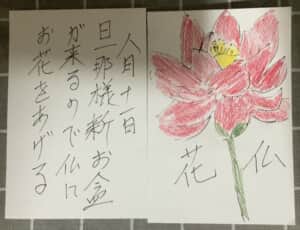 八月十一日
旦那様新お盆
が来るので仏に
お花をあげる
仏
花